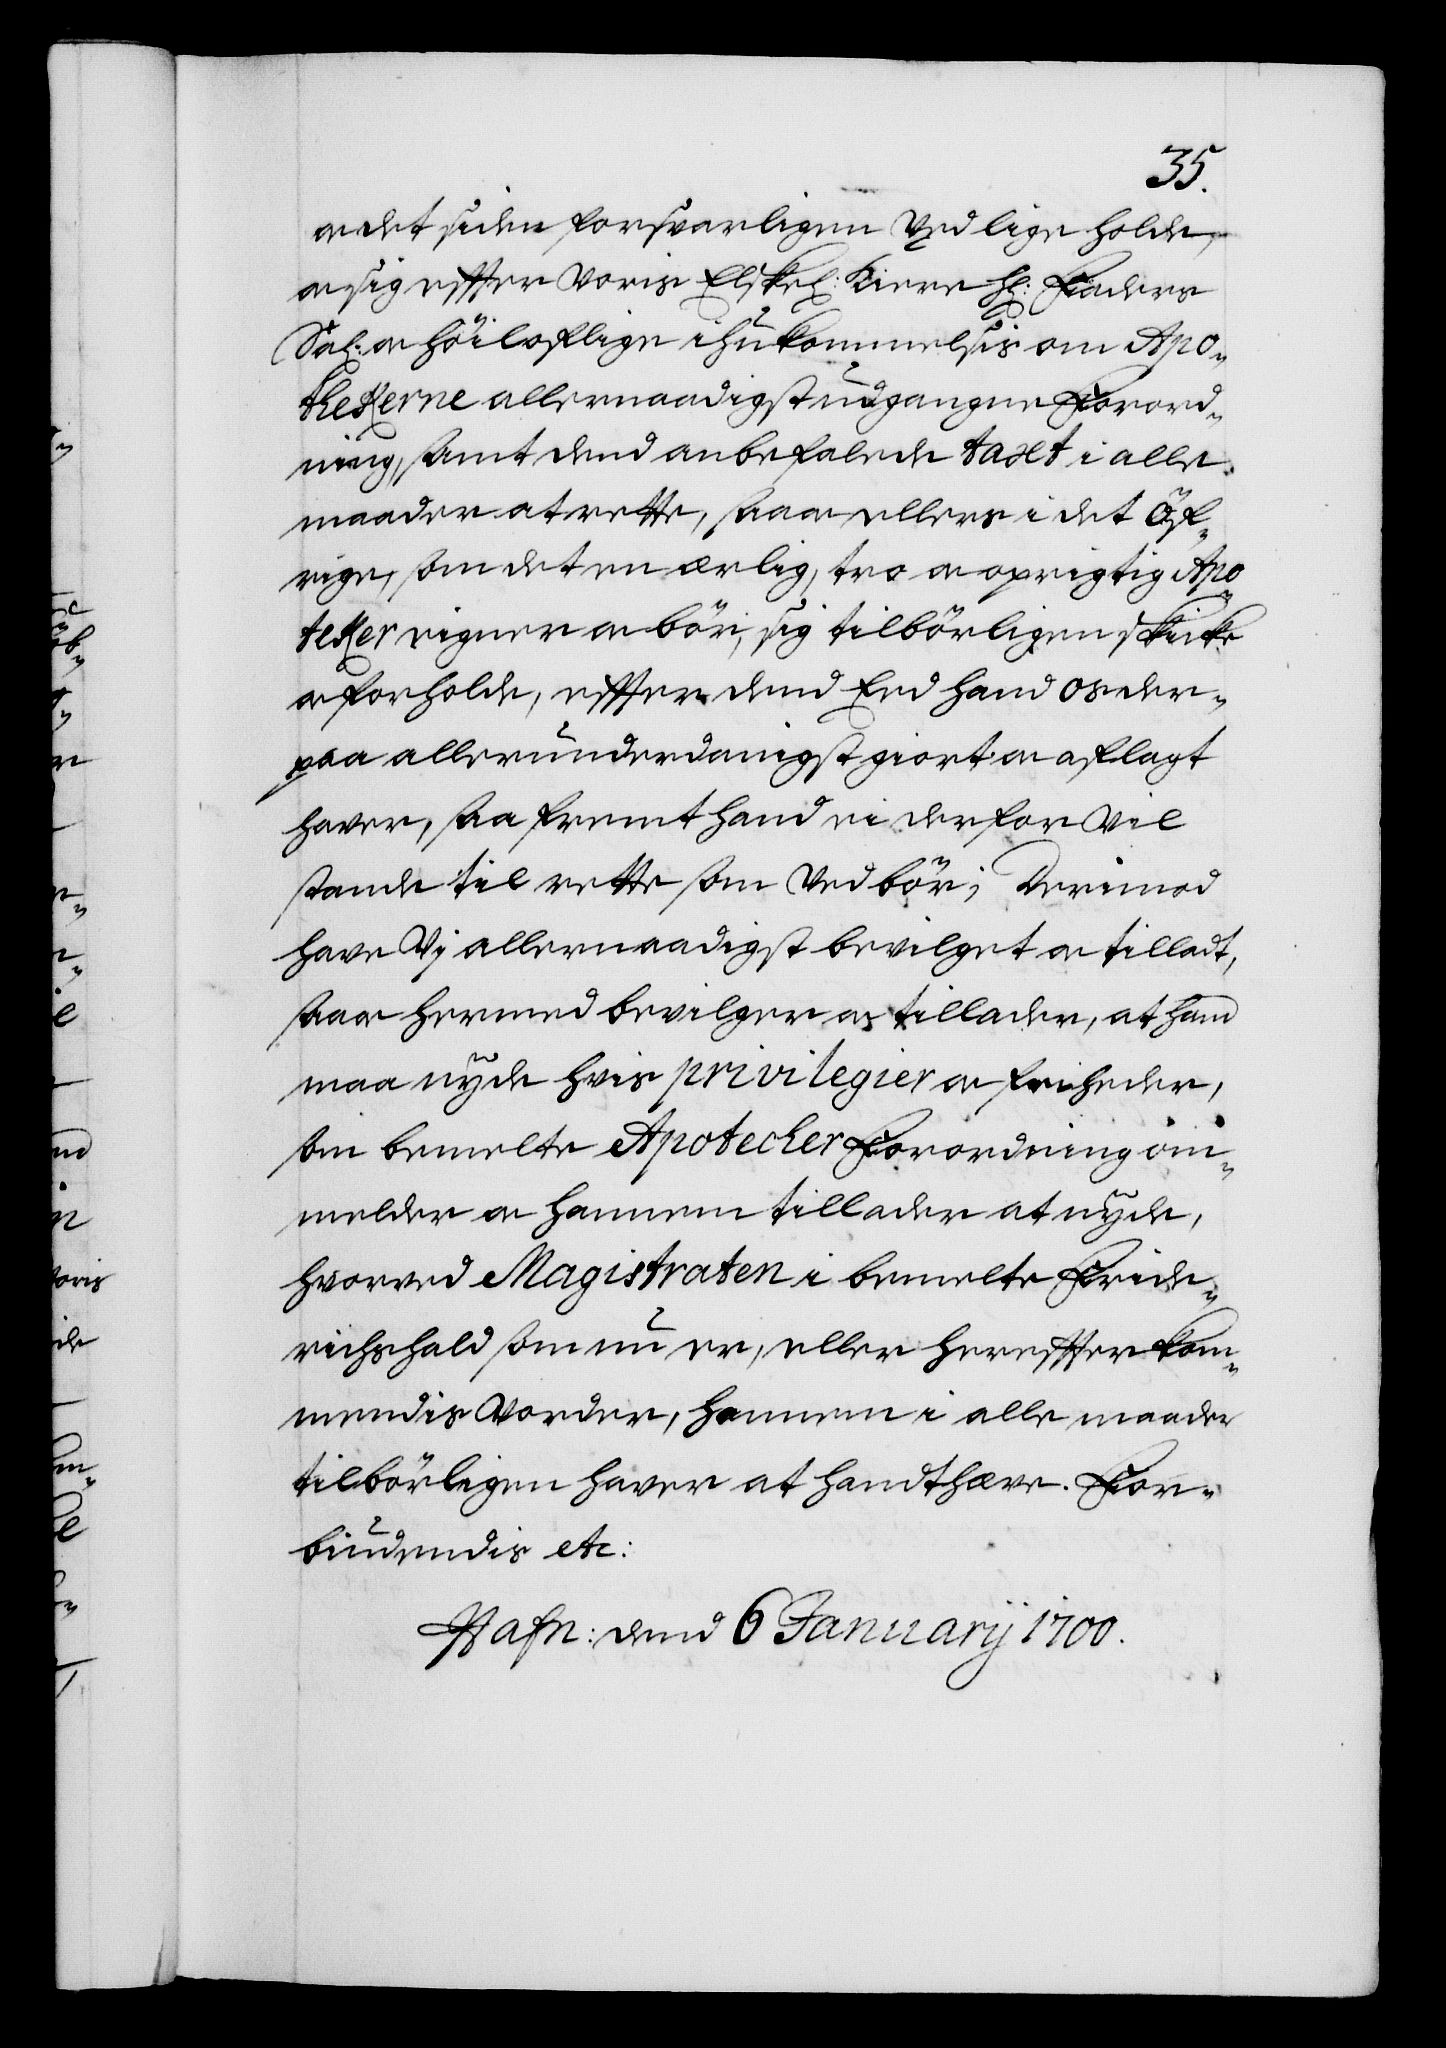 35.
og det siden forsvarligen Ved lige holde,
og sig effter Voris Elskel: Kiere Hr: Faders
Sal: og höiloflige ihukommelsis om Apo-
thekerne allernaadigst udgangne Forord-
ning, samt dend anbefalede taxt i alle
maader at rette, saa og ellers i det öf-
rige, som det en ærlig, tro og oprigtig Apo-
teker eigner og bör, sig tilbörligen skicke
og forholde, effter dend Eed hand os der-
paa allerunderdanigst giort og aflagt
haver, saa fremt hand ei derfor Vil
stande til rette som Vedbör; Derimod
have Vj allernaadigst bevilget og tilladt,
saa og hermed bevilger og tillader, at hand
maa nyde hvis privilegier og friheder,
som bemelte Apotecher Forordning om-
melder og hannem tillader at nyde,
hvorved Magistraten i bemelte Fride-
richshald som nu er, eller hereffter kom-
mendis Vorder, hannem i alle maader
tilbörligen haver at handthæve. For-
biudendis etc:
Hafn: dend 6 Januarij 1700.